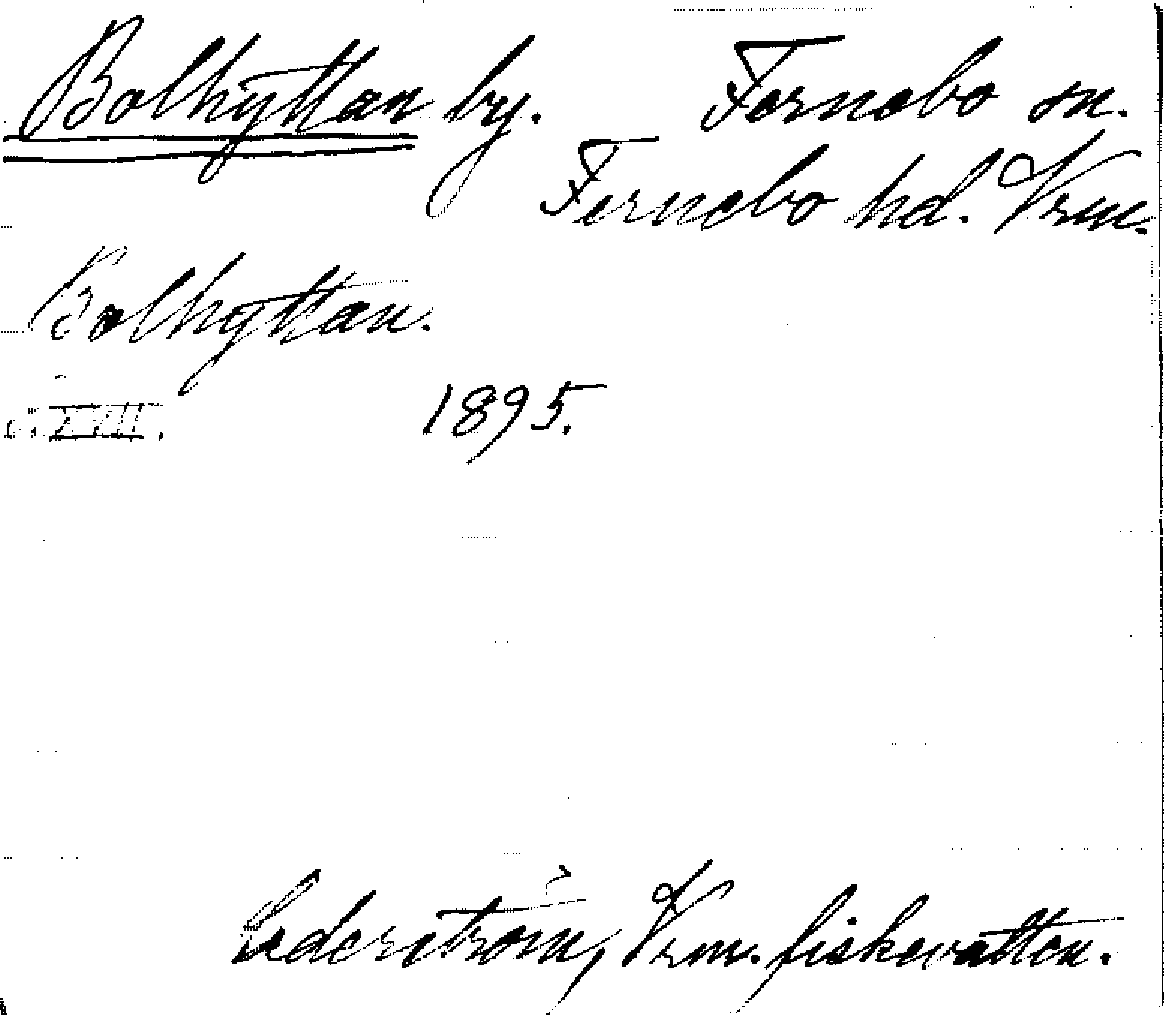 Bolhyttan by. Fernebo sn.
Fernebo hd. Vrm.
Bolhyttan.
XVII. 1895.
Cederström, Vrm. fiskevatten.